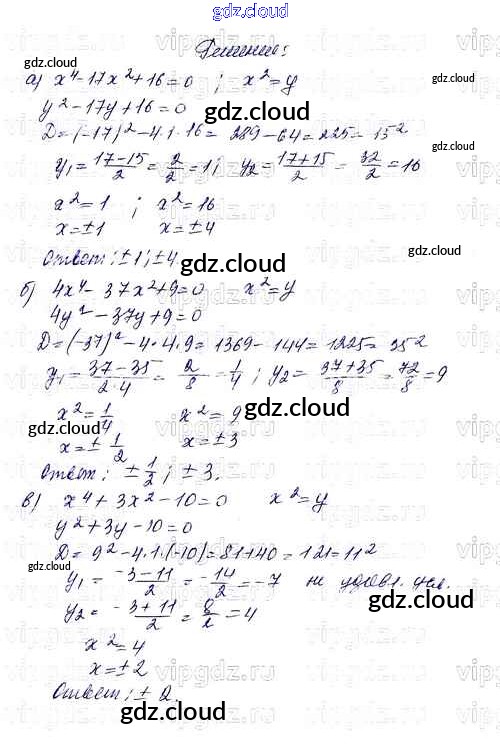 gdz.cloud
gdz.cloud
Решение:
gdz.cloud
а) x⁴-17x²+16=0 ; x²=y
y²-17y+16=0
gdz.cloud
D=(-17)²-4·1·16= 289-64=225=15²
y₁=17-15/2=2/2=1; y₂=17+15/2=32/2=16
gdz.cloud gdz.cloud
x²=1 ; x²=16
x=±1 x=±4
Ответ: ±1; ±4
gdz.cloud
б) 4x⁴-37x²+9=0 x²=y
4y²-37y+9=0
gdz.cloud
D=(-37)²-4·4·9=1369-144=1225=35²
y₁=37-35/2·4=2/8=1/4; y₂=37+35/8=72/8=9
x²=1/4 x²=9
gdz.cloud
gdz.cloud
x=±1/2 x=±3
Ответ: ±1/2; ±3.
gdz.cloud
в) x⁴+3x²-10=0 x²=y
y²+3y-10=0
D=9²-4·1·(-10)=81+40=121=11²
gdz.cloud
y₁=-3-11/2=-14/2=-7 не удовл. усл.
gdz.cloud
y₂=-3+11/2=8/2=4
x²=4
x=±2
gdz.cloud
Ответ: ±2.
gdz.cloud